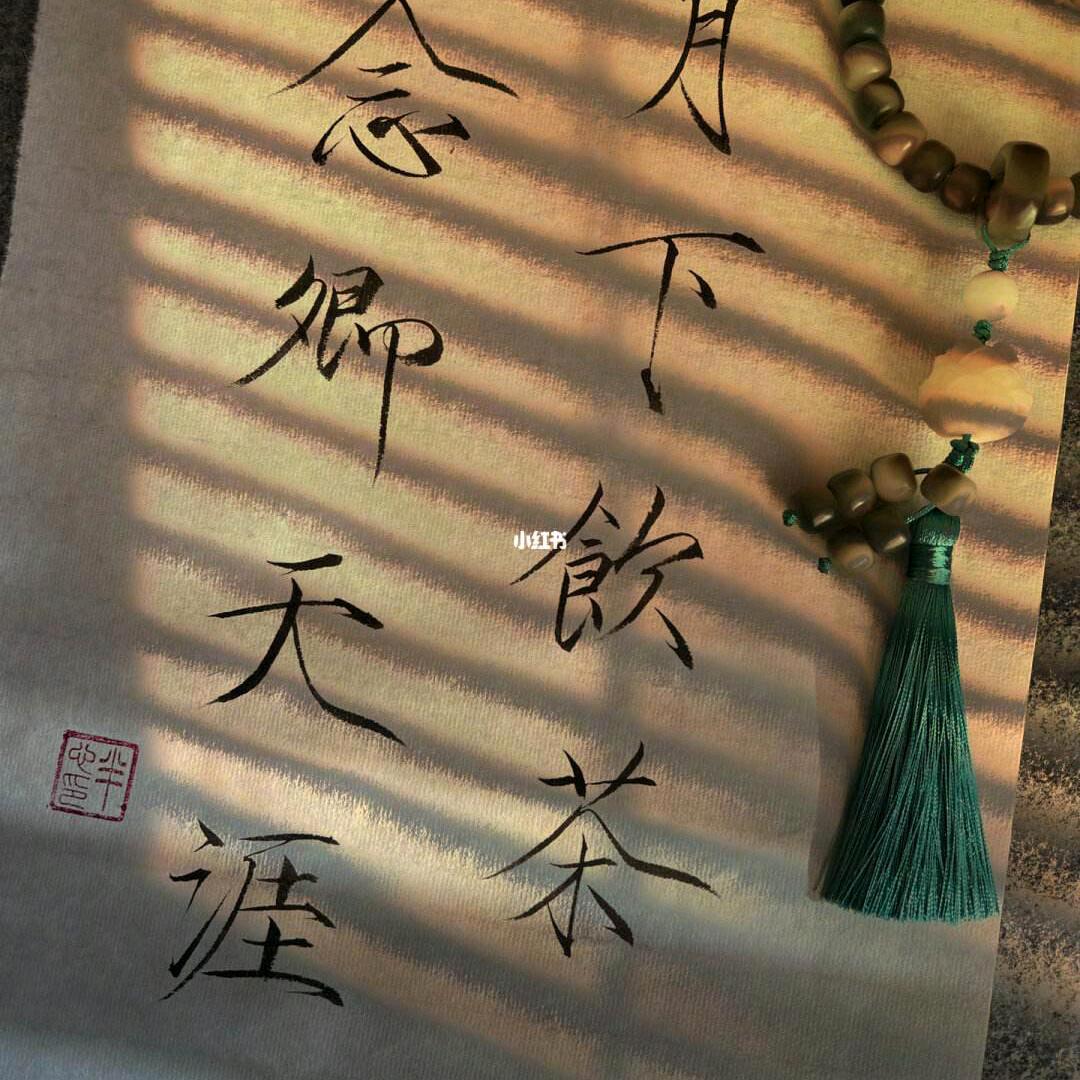 月下飲茶
念卿天涯
小红书